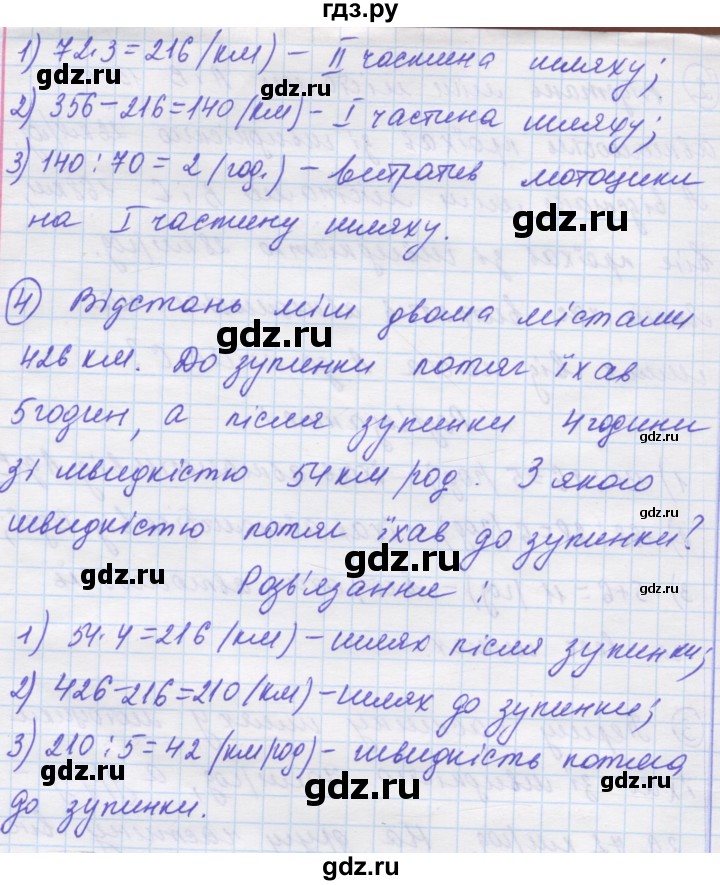 гдз.ру
1) 72·3=216 (км) – II частина шляху;
2) 356–216=140 (км) – I частина шляху;
3) 140:70=2 (год.) – витратив мотоцикл
на I частину шляху.
4 Відстань між двома містами
426 км. До зупинки потяг їхав
5 годин, а після зупинки 4 години
зі швидкістю 54 км/год. З якою
швидкістю потяг їхав до зупинки?
Розв'язання:
1) 54·4=216 (км) – шлях після зупинки;
2) 426–216=210 (км) – шлях до зупинки;
3) 210:5=42 (км/год) – швидкість потяга
до зупинки.
gdz.ru